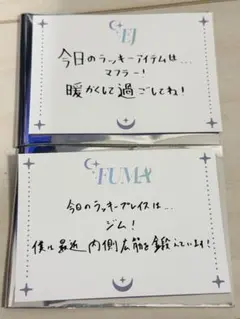 EJ
今日のラッキーアイテムは...
マフラー!
暖かくして過ごしてね!
FUMA
今日のラッキープレイスは...
ジム!
僕は最近 内側広筋を鍛えています!